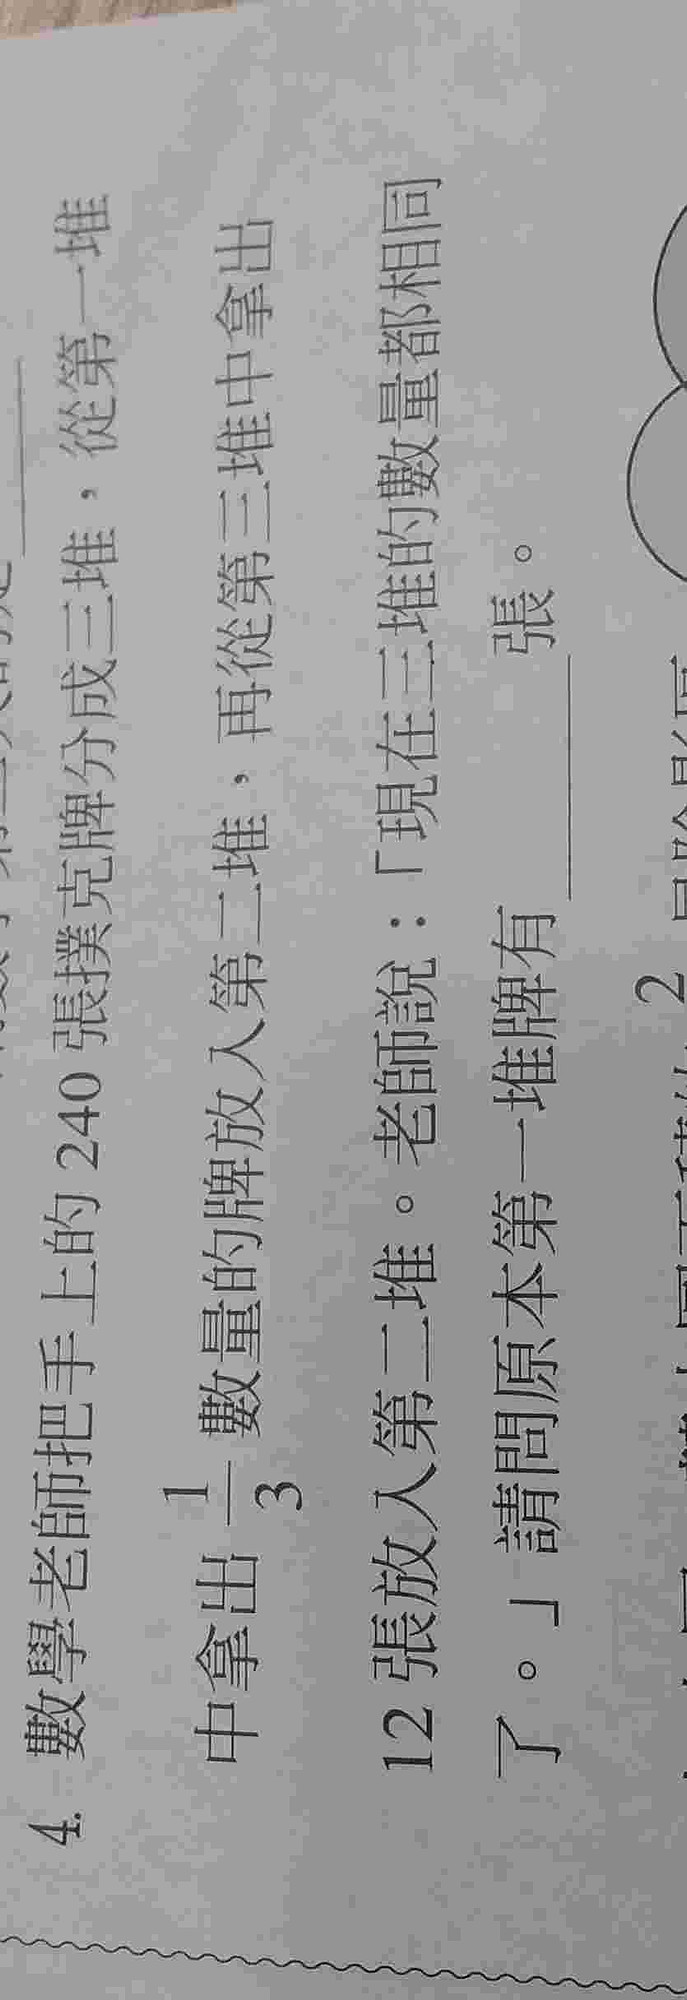 4. 數學老師把手上的 240 張撲克牌分成三堆，從第一堆
中拿出 1/3 數量的牌放入第二堆，再從第三堆中拿出
12 張放入第二堆。老師說：「現在三堆的數量都相同
了。」請問原本第一堆牌有______張。
2